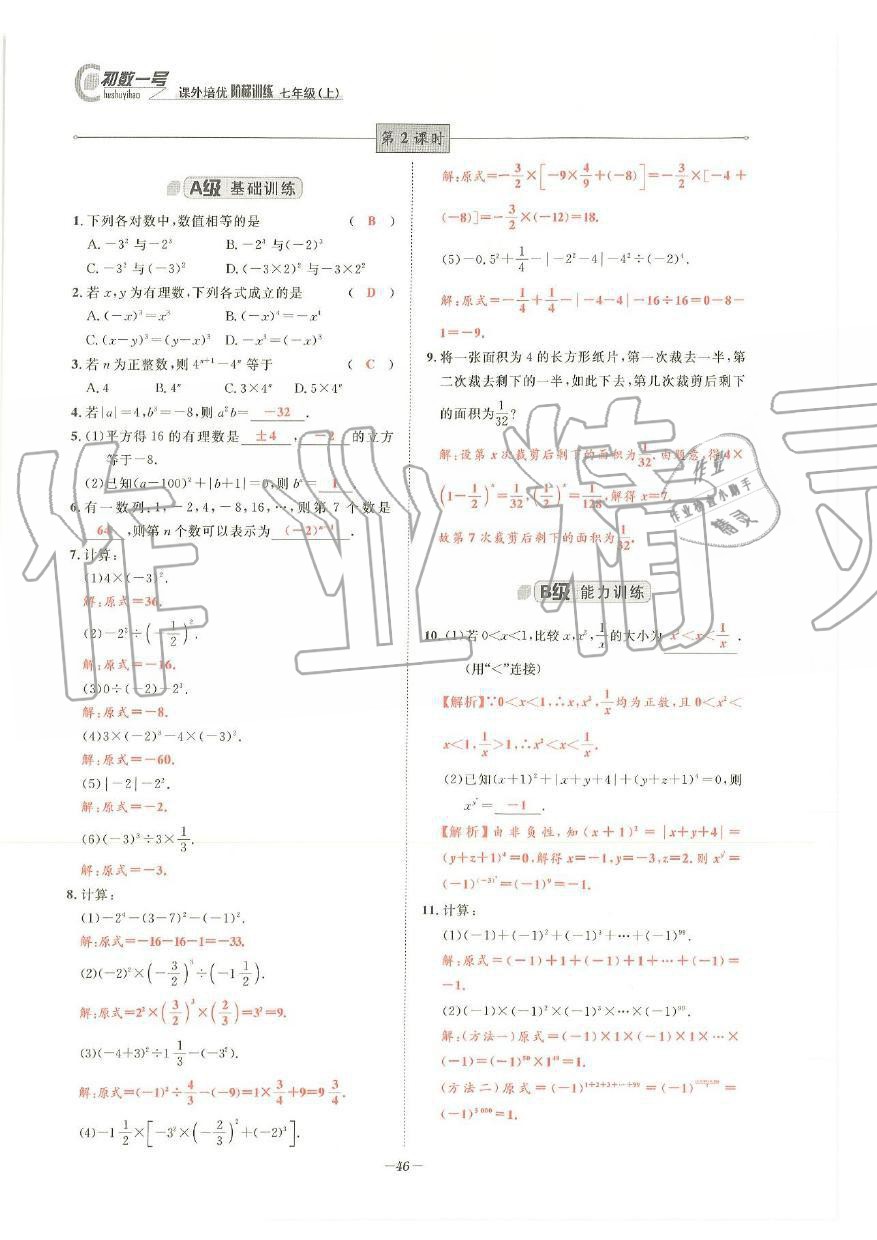 初数一号
Chushuyihao
课外培优 阶梯训练 七年级(上)
第2课时
A级 基础训练
1. 下列各对数中,数值相等的是 ( B )
A. －3²与－2³ B. －2³与(－2)³
C. －3³与(－3)² D. (－3×2)²与－3×2²
2. 若x,y为有理数,下列各式成立的是 ( D )
A. (－x)³=x³ B. (－x)⁴=－x⁴
C. (x－y)³=(y－x)³ D. －x³=(－x)³
3. 若n为正整数,则4ⁿ⁺¹－4ⁿ等于 ( C )
A. 4 B. 4ⁿ C. 3×4ⁿ D. 5×4ⁿ
4. 若|a|=4,b³=－8,则a²b= －32 .
5. (1)平方得16的有理数是 ±4 , －2 的立方
等于－8.
(2)已知(a－100)²+|b+1|=0,则bᵃ= 1 .
6. 有一数列,1,－2,4,－8,16,…,则第7个数是
64 ,则第n个数可以表示为 (－2)ⁿ⁻¹ .
7. 计算:
(1)4×(－3)².
解:原式=36.
(2)－2²÷(－1/2)².
解:原式=－16.
(3)0÷(－2)－2³.
解:原式=－8.
(4)3×(－2)³－4×(－3)².
解:原式=－60.
(5)|－2|－2².
解:原式=－2.
(6)(－3)³÷3×1/3.
解:原式=－3.
8. 计算:
(1)－2⁴－(3－7)²－(－1)².
解:原式=－16－16－1=－33.
(2)(－2)²×(－3/2)³÷(－1 1/2).
解:原式=2²×(3/2)³×(2/3)=3²=9.
(3)(－4+3)²÷1 1/3－(－3²).
解:原式=(－1)²÷4/3－(－9)=1×3/4+9=9 3/4.
(4)－1 1/2×[－3²×(－2/3)²+(－2)³].
－46－
解:原式=－3/2×[－9×4/9+(－8)]=－3/2×[－4+
(－8)]=－3/2×(－12)=18.
(5)－0.5²+1/4－|－2²－4|－4²÷(－2)⁴.
解:原式=－1/4+1/4－|－4－4|－16÷16=0－8－
1=－9.
9. 将一张面积为4的长方形纸片,第一次裁去一半,第
二次裁去剩下的一半,如此下去,第几次裁剪后剩下
的面积为1/32?
解:设第x次裁剪后剩下的面积为1/32.由题意,得4×
(1－1/2)ˣ=1/32,(1/2)ˣ=1/128,解得x=7.
故第7次裁剪后剩下的面积为1/32.
B级 能力训练
10. (1)若0<x<1,比较x,x²,1/x的大小为 x²<x<1/x .
(用“<”连接)
【解析】∵0<x<1,∴x,x²,1/x均为正数,且0<x²<
x<1,1/x>1,∴x²<x<1/x.
(2)已知(x+1)²+|x+y+4|+(y+z+1)⁴=0,则
x^(y^z)= －1 .
【解析】由非负性,知(x+1)²=|x+y+4|=
(y+z+1)⁴=0,解得x=－1,y=－3,z=2.则x^(y^z)=
(－1)^((－3)²)=(－1)⁹=－1.
11. 计算:
(1)(－1)+(－1)²+(－1)³+…+(－1)⁹⁹.
解:原式=(－1)+1+(－1)+1+…+(－1)=
－1.
(2)(－1)×(－1)²×(－1)³×…×(－1)⁹⁹.
解:(方法一)原式=(－1)×1×(－1)×1×…×
(－1)=(－1)⁵⁰×1⁴⁹=1.
(方法二)原式=(－1)¹⁺²⁺³⁺…⁺⁹⁹=(－1)
=1.
作业精灵
作业
作业检查小助手
精灵